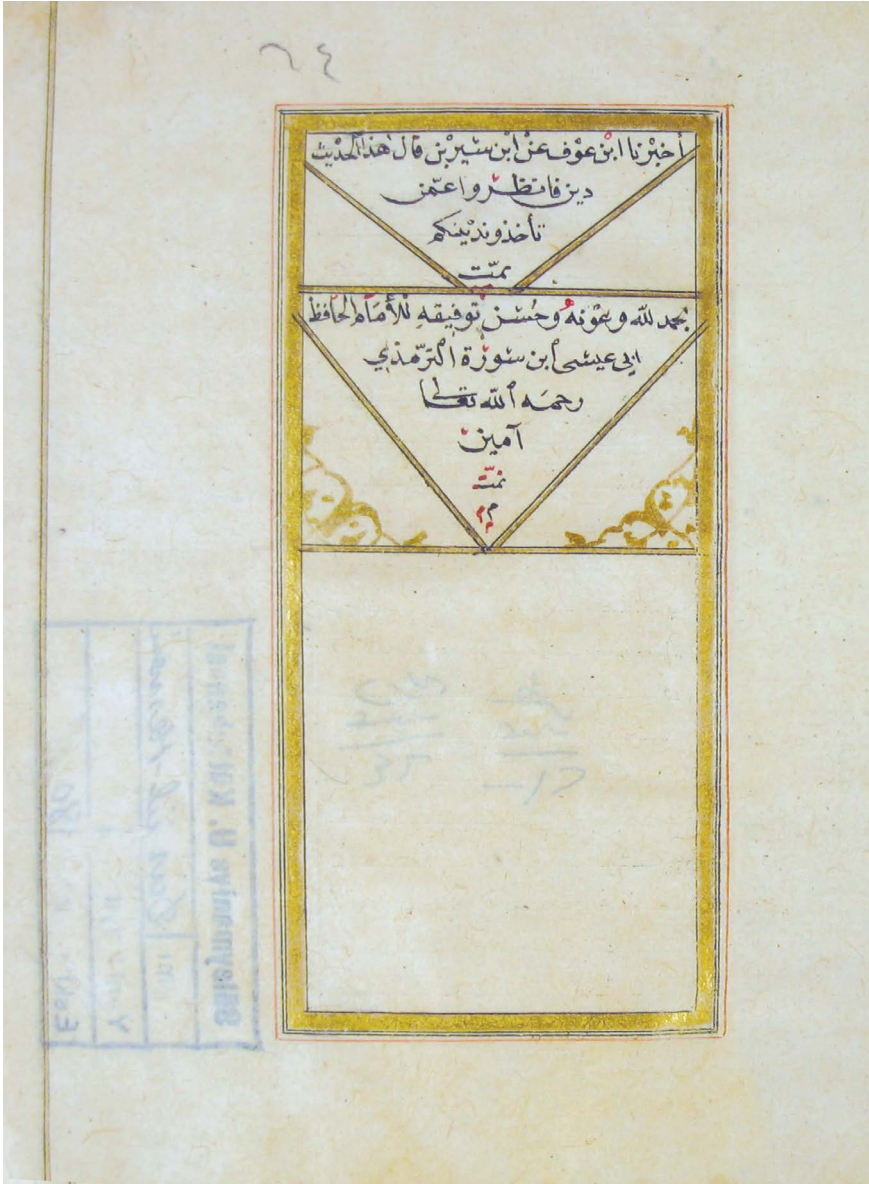 ٦٤
أخبرنا ابن عوف عن ابن سيرين قال هذا الحديث
دين فانظروا عمن
تأخذون دينكم
تمت
بحمد لله وعونه وحسن توفيقه للأمام الحافظ
ابي عيسى ابن سورة الترمذي
رحمه الله تعالى
آمين
تمت
م م م
Süleymaniye U. Kütüphanesi